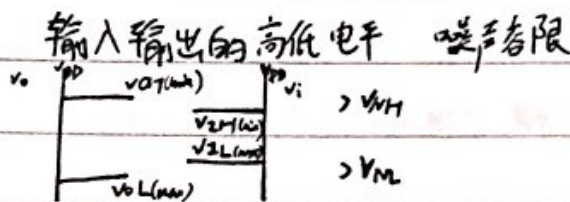 输入输出的高低电平 噪声容限
VDD VDD
Vo VOH(min) Vi
VIH(min) > VNH
VIL(max)
> VNL
VOL(max)